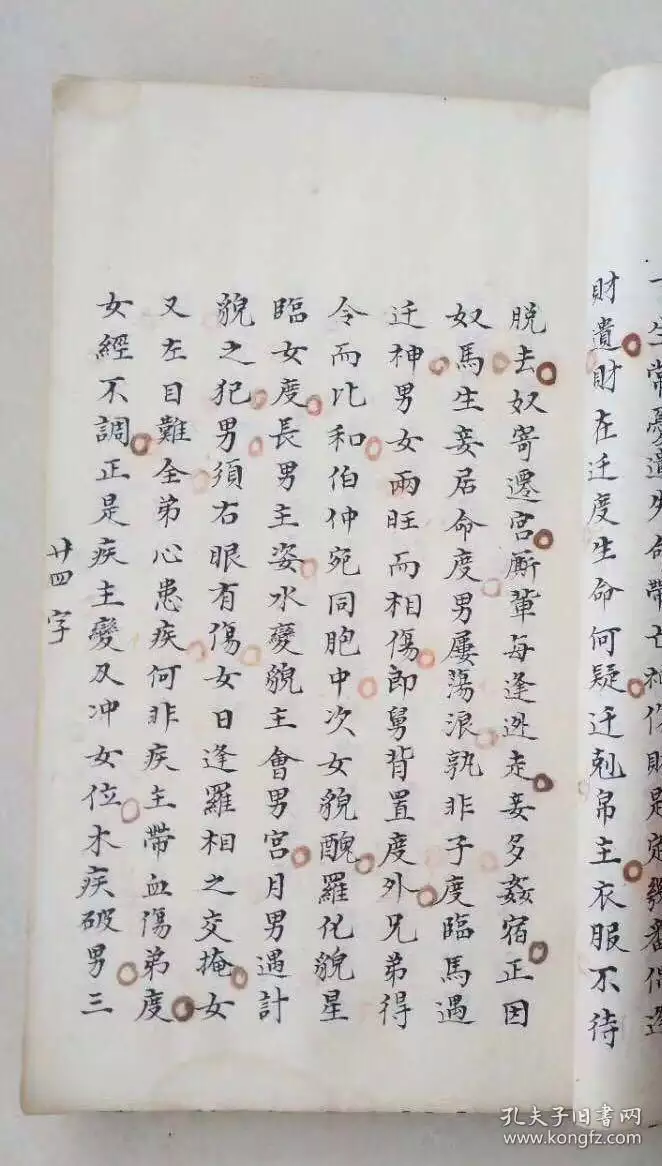 一生常憂遺失命帶亡神傷財是定
財遺財在迁度生命何疑迁剋帛主衣服不待
脱去奴寄遷宮厮輩每逢迯走妾多姦宿正因
奴馬生妾居命度男屢蕩浪孰非子度臨馬遇
迁神男女兩旺而相傷郎舅背置度外兄弟得
令而比和伯仲宛同胞中次女貌醜羅化貌星
臨女度長男主姿水變貌主會男宮月男遇計
貌之犯男須右眼有傷女日逢羅相之交掩女
又左目難全弟心患疾何非疾主帶血傷弟度
女經不調正是疾主變及冲女位木疾破男三
廿四字
孔夫子旧书网
www.kongfz.com